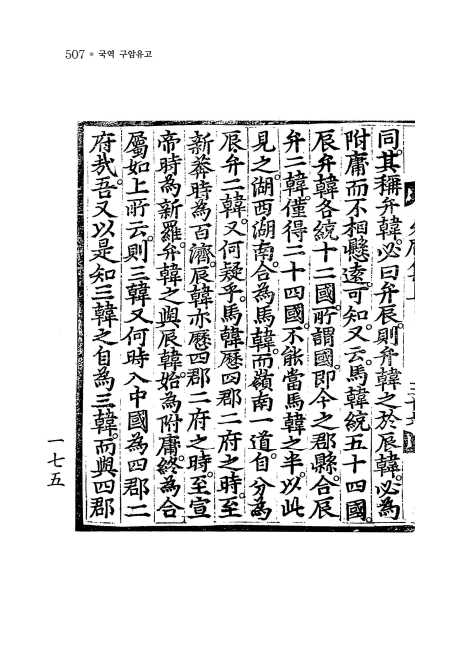 507 ● 국역 구암유고
同。其稱弁韓。必曰弁辰。則弁韓之於辰韓。必爲
附庸而不相懸遠。可知。又云。馬韓統五十四國。
辰弁韓各統十二國。所謂國。即今之郡縣。合辰
弁二韓。僅得二十四國。不能當馬韓之半。以此
見之。湖西湖南。合爲馬韓。而嶺南一道。自分爲
辰弁二韓。又何疑乎。馬韓歷四郡二府之時。至
新莽時爲百濟。辰韓亦歷四郡二府之時。至宣
帝時爲新羅。弁韓之與辰韓。始爲附庸。終爲合
屬如上所云。則三韓又何時入中國爲四郡二
府哉。吾又以是知三韓之自爲三韓。而與四郡
一七五